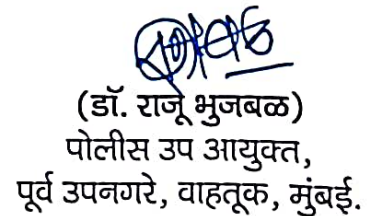 (डॉ. राजू भुजबळ)
पोलीस उप आयुक्त,
पूर्व उपनगरे, वाहतूक, मुंबई.